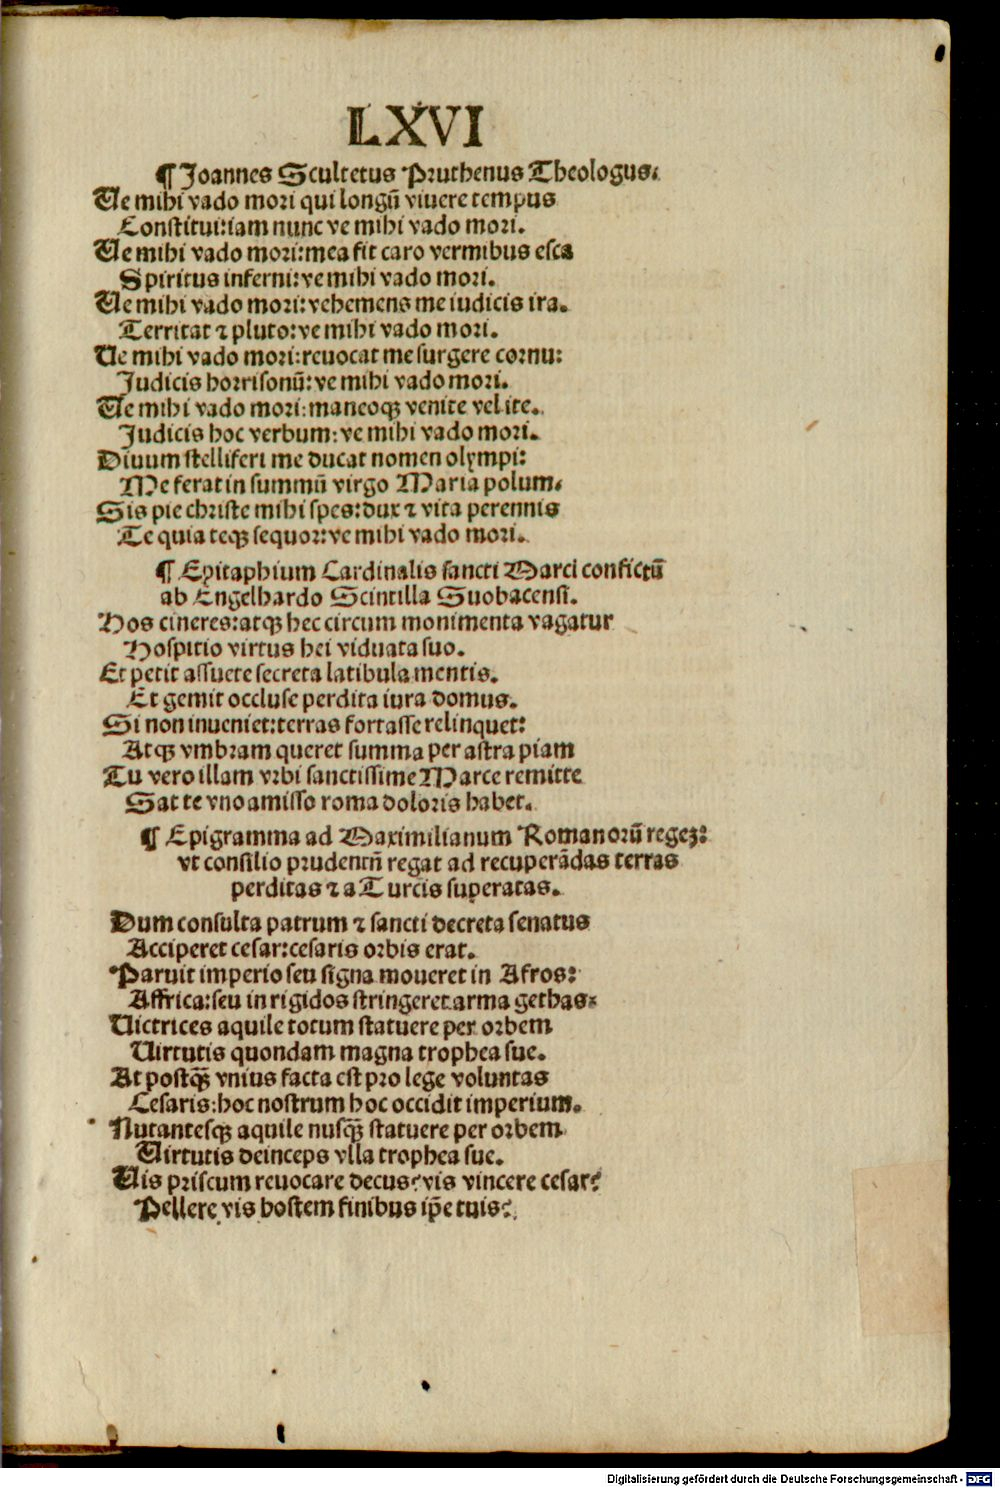 LXVI
¶ Joannes Scultetus Pruthenus Theologus.
Ve mihi vado mori qui longū viuere tempus
Constitui:iam nunc ve mihi vado mori.
Ve mihi vado mori:mea fit caro vermibus esca
Spiritus inferni:ve mihi vado mori.
Ve mihi vado mori:vehemens me iudicis ira.
Territat ⁊ pluto:ve mihi vado mori.
Ve mihi vado mori:reuocat me surgere cornu:
Judicis horrisonū:ve mihi vado mori.
Ve mihi vado mori:maneoqꝫ venite vel ite.
Judicis hoc verbum:ve mihi vado mori.
Diuum stelliferi me ducat nomen olympi:
Me ferat in summū virgo Maria polum.
Sis pie christe mihi spes:dux ⁊ vita perennis
Te quia teqꝫ sequor:ve mihi vado mori.
¶ Epitaphium Cardinalis sancti Marci confictū
ab Engelhardo Scintilla Suobacensi.
Hos cineres:atqꝫ hec circum monimenta vagatur
Hospitio virtus hei viduata suo.
Et petit assuete secreta latibula mentis.
Et gemit occluse perdita iura domus.
Si non inueniet:terras fortasse relinquet:
Atqꝫ vmbram queret summa per astra piam
Tu vero illam vrbi sanctissime Marce remitte
Sat te vno amisso roma doloris habet.
¶ Epigramma ad Maximilianum Romanorū regeꝫ:
vt consilio prudentū regat ad recuperādas terras
perditas ⁊ a Turcis superatas.
Dum consulta patrum ⁊ sancti decreta senatus
Acciperet cesar:cesaris orbis erat.
Paruit imperio seu signa moueret in Afros:
Affrica:seu in rigidos stringeret arma gethas:
Victrices aquile totum statuere per orbem
Virtutis quondam magna trophea sue.
At postqꝫ̄ vnius facta est pro lege voluntas
Cesaris:hoc nostrum hoc occidit imperium.
Nutantesqꝫ aquile nusqꝫ̄ statuere per orbem
Virtutis deinceps vlla trophea sue.
Vis priscum reuocare decus?vis vincere cesar?
Pellere vis hostem finibus ip̄e tuis?
Digitalisierung gefördert durch die Deutsche Forschungsgemeinschaft - DFG